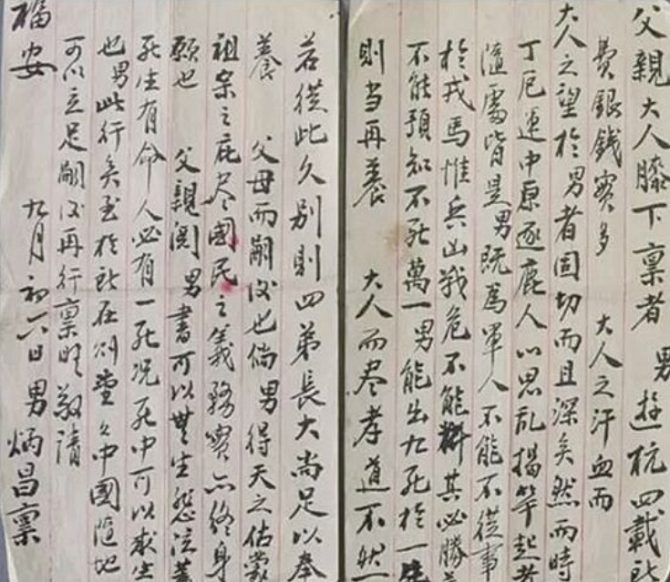 父親大人膝下禀者 男遊杭四載所
費銀錢實多 大人之汗血而
大人之望於男者固切而且深矣然而時
丁厄運中原逐鹿人心思乱揭竿起者
隨處皆是男既為軍人不能不從事
於戎馬惟兵凶戰危不能料其必勝
不能預知不死萬一男能出九死於一
則当再養 大人而尽孝道不然
若從此久別則四弟長大尚足以奉
養 父母而嗣後也倘男得天之佑蒙
祖宗之庇尽國民之義務實亦終身
願也 父親阅男書可以無生愁
死生有命人必有一死况死中可以求生
也男此行矣至於所在堂堂中國隨地
可以立足嗣後再行禀明敬請
福安
九月初六日男炳昌禀